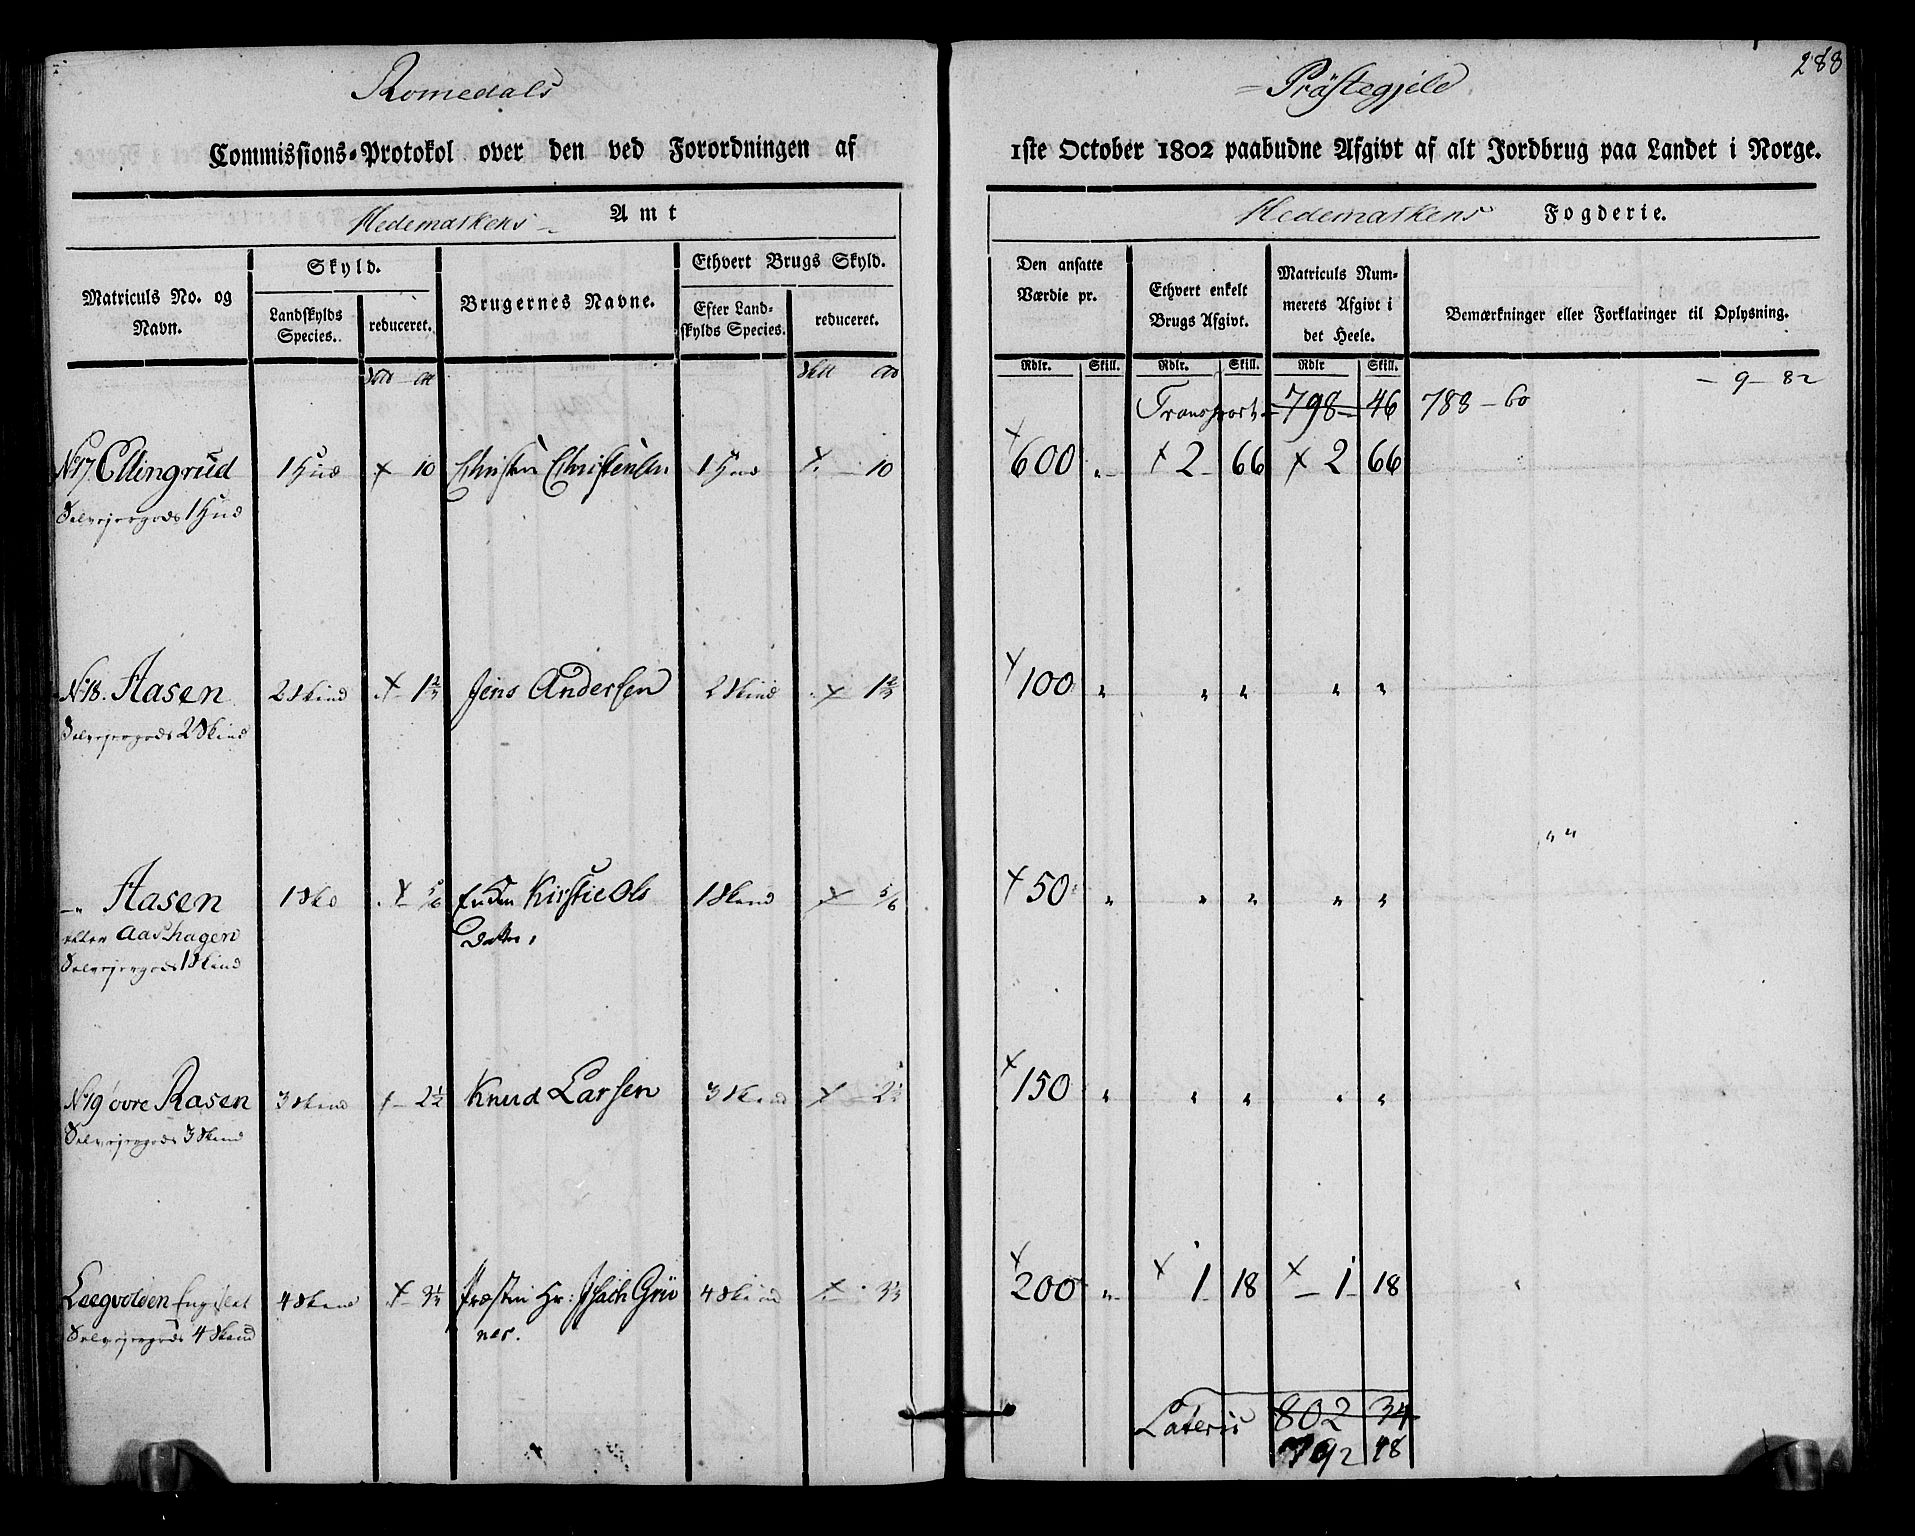 288
Romedals Præstegjeld
Commissions-Protokol over den ved Forordningen af 1ste October 1802 paabudne Afgivt af alt Jordbrug paa Landet i Norge.
Hedemarkens Amt
Hedemarkens Fogderie.
Matriculs No. og Navn.
Skyld.
Landskylds Species.
reduceret.
Brugernes Navne.
Ethvert Brugs Skyld.
Efter Landskylds Species.
reduceret.
Den ansatte Værdie pr.
Ethvert enkelt Brugs Afgivt.
Matriculs Nummerets Afgivt i det Heele.
Bemærkninger eller Forklaringer til Oplysning.
Rdlr. Skill. Rdlr. Skill. Rdlr Skill.
Transport 798 46 783 - 60 - 9 - 82
No 17 Ellingrud 1 Hud x 10 Christen Christensen 1 Hud x 10 x 600 " x 2 66 x 2 66
Selvejergods 1 Hud
No 18. Aasen 2 Skind x 1 2/3 Jens Andersen 2 Skind x 1 2/3 x 100 " " " " "
Selvejergods 2 Skind
" "
-" Aasen 1 Sk x 5/6 Enken Kirstie Ols 1 Skind x 5/6 x 50 " " " " "
eller Aashagen Datter,
Selvejergods 1 Skind
No 19 øvre Raasen 3 Skind x 2 1/2 Knud Larsen 3 Skind x 2 1/2 x 150 " " " " "
Selvejergods 3 Skind
Leegvolden Engeslet 4 Skind x 3 1/3 Præsten Hr: Isach Grü 4 Skind x 3 1/3 x 200 " x 1 18 x 1 18
Selvejergods 4 Skind ner.
Lateris 802 34
792 48